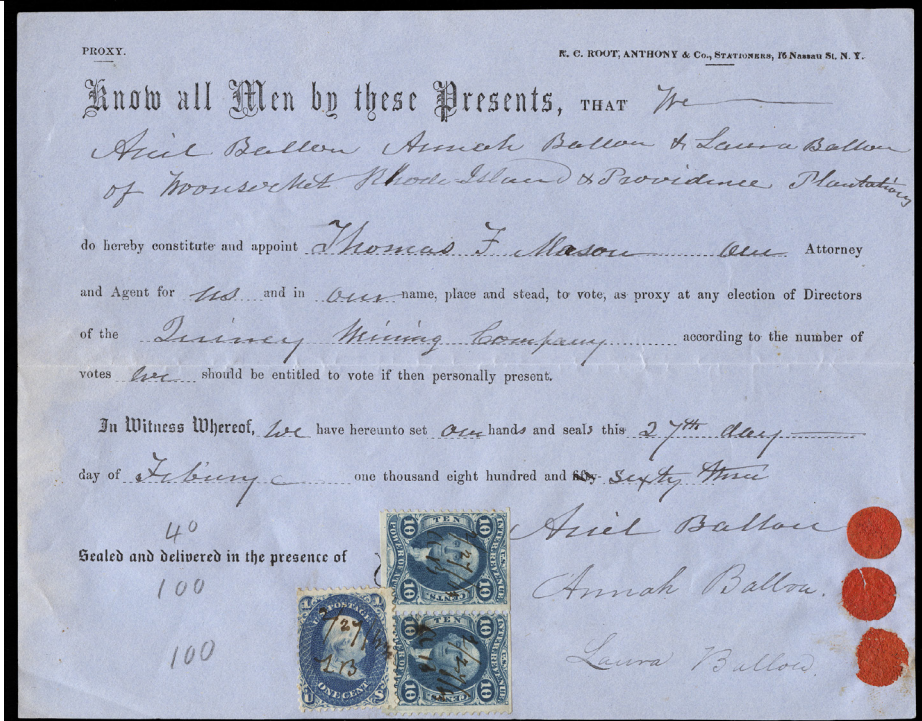 PROXY.
R. C. ROOT, ANTHONY & Co., STATIONERS, 16 Nassau St. N. Y.
Know all Men by these Presents, THAT We
Ariel Ballou Annah Ballou & Laura Ballou
of Woonsocket Rhode Island & Providence Plantations
do hereby constitute and appoint Thomas F Mason our Attorney
and Agent for us and in our name, place and stead, to vote, as proxy at any election of Directors
of the Quincy Mining Company according to the number of
votes we should be entitled to vote if then personally present.
In Witness Whereof, we have hereunto set our hands and seals this 27th day
day of Febury one thousand eight hundred and fifty sixty three
40
Sealed and delivered in the presence of
100
100
Ariel Ballou
Annah Ballou.
Laura Ballou
TEN
10 10
INTER. REVENUE
POWER OF AT
10 CENTS 10
TEN
10 10
INTER. REVENUE
10 CENTS 10
U.S. POSTAGE
1 1
2/27/63
A.B
ONE CENT
U S